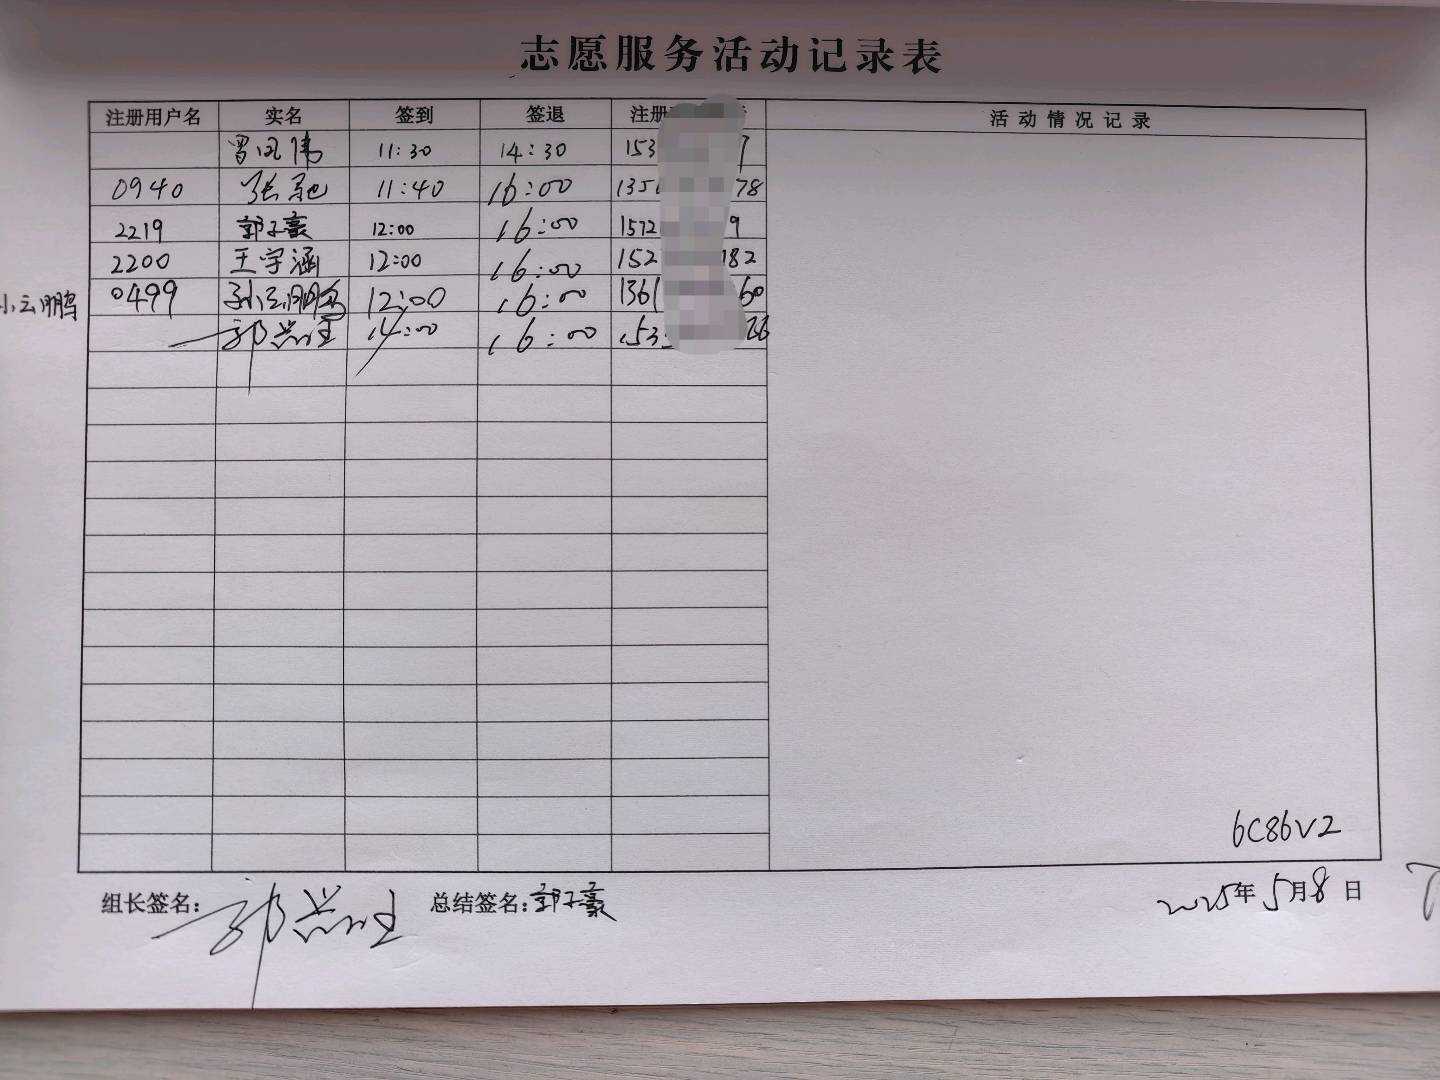 志愿服务活动记录表
注册用户名 实名 签到 签退 注册 活动情况记录
罗凤伟 11:30 14:30 153 7
0940 张驰 11:40 16:00 135 78
2219 郭子豪 12:00 16:00 1572 9
2200 王宇涵 12:00 16:00 152 182
小云鹏 0499 孙云鹏 12:00 16:00 1361 60
郭 14:00 16:00 153 26
6C86V2
组长签名: 郭 总结签名: 郭子豪 2025年5月8日